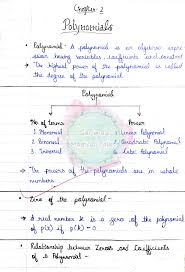 Chapter - 2
Polynomials
• Polynomial - A polynomial is an algebraic expression having variables, coefficients and constant
• The highest power of the polynomial is called the degree of the polynomial.
Polynomial
No. of terms
Power
1. Monomial
1. Linear Polynomial
2. Binomial
2. Quadratic Polynomial
3. Trinomial
3. Cubic Polynomial
• The powers of the polynomials are in whole numbers
• Zero of the polynomial -
A real number k is a zero of the polynomial of p(x) if p(k) = 0
• Relationship between Zeroes and Coefficients of a Polynomial -